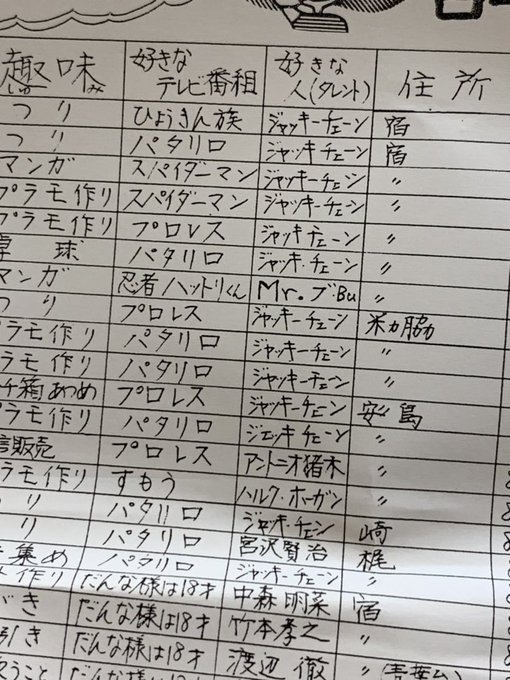 趣味 好きなテレビ番組 好きな人(タレント) 住所
しゅ み
つり ひょうきん族 ジャッキーチェーン 宿
つり パタリロ ジャッキチェーン 宿
マンガ スパイダーマン ジャッキーチェーン 〃
プラモ作り スパイダーマン ジャッキーチェーン 〃
プラモ作り プロレス ジャッキーチェーン 〃
卓球 パタリロ ジャッキ・チェーン 〃
マンガ 忍者ハットリくん Mr.ブ・Bu 〃
つり プロレス ジャッキーチェーン 脇
ラモ作り パタリロ ジャッキーチェーン 〃
ラモ作り パタリロ ジャッキーチェーン 〃
チ箱あつめ プロレス ジャッキーチェーン 島
ラモ作り パタリロ ジェッキチェーン 〃
販売 プロレス アントニオ猪木 〃
ラモ作り すもう ハルク・ホーガン 〃
り パタリロ ジャッキ・チェン 崎
り パタリロ 宮沢賢治 梶
集め パタリロ ジャッキーチェーン 〃
作り だんな様は18才 中森明菜 宿
がき だんな様は18才 竹本孝之 〃
引き だんな様は18才 渡辺徹 〃(青葉台)
うこと だんな様は18才